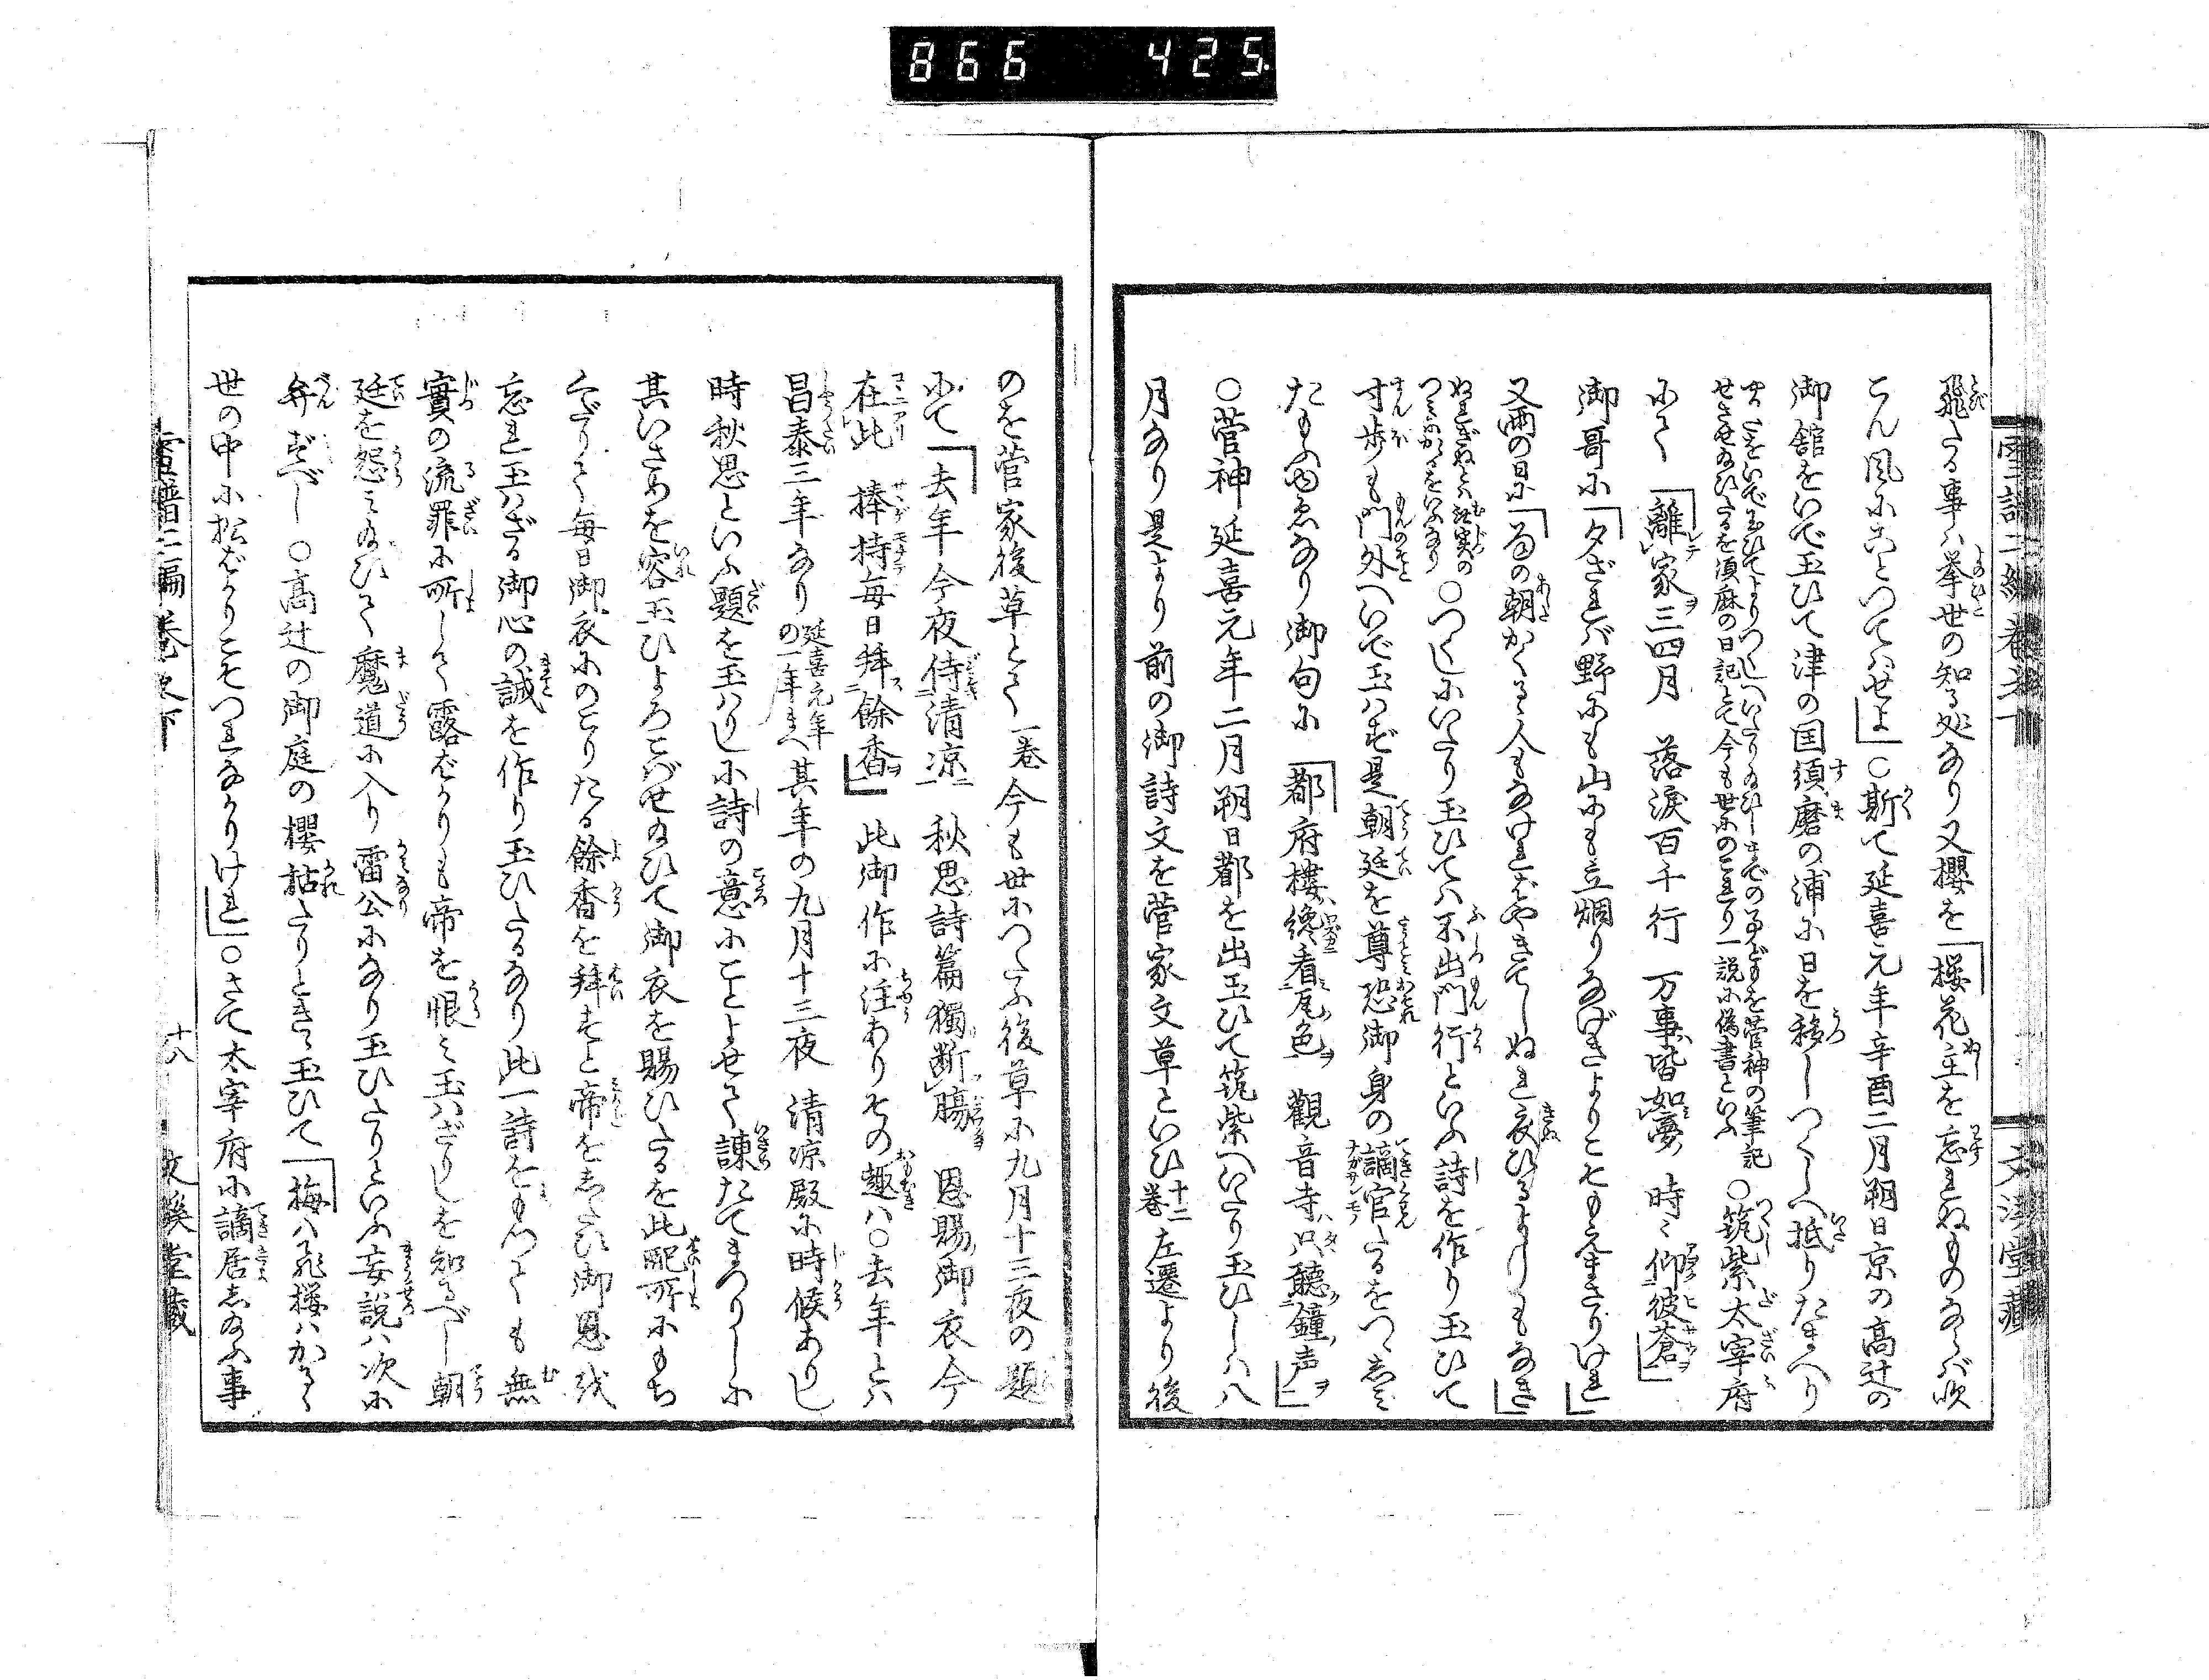 866 425
雪譜二編巻之下
文渓堂蔵
飛たる事ハ挙世の知る処なり又櫻を「櫻花主を忘れぬものならバ吹
こん風にことつてハせよ」○斯て延喜元年辛酉二月朔日京の高辻の
御舘をいで玉ひて津の国須磨の浦に日を移しつくしへ抵りたまへり
せさせ給ひたるを須麻の日記とて今も世にのこれり一説に偽書といふ
○筑紫太宰府
にて「離家三四月 落涙百千行 万事皆如夢 時々仰彼蒼」
御哥に「夕ざれバ野にも山にも立烟りなげきよりこそもえまさりけれ」
又雨の日に「雨の朝かくる人もなけれバやきてしぬれ衣ひるよしもなき」
ぬれぎぬとハ無実の
つミにかゝるをいふなり
○つくしにいたり玉ひてハ不出門行といふ詩を作り玉ひて
寸歩も門外へいで玉ハず是朝廷を尊恐御身の謫官たるをつゝしミ
たもふゆゑなり御句に「都府樓纔看瓦色 觀音寺只聽鐘声」
○菅神延喜元年二月朔日都を出玉ひて筑紫へいたり玉ひしハ八
月なり是より前の御詩文を菅家文草といひ十二巻左遷より後
のを菅家後草とて一巻今も世につたふ後草に九月十三夜の題
にて「去年今夜侍清凉 秋思詩篇獨断膓 恩賜御衣今
在此 捧持毎日拜餘香」此御作に注ありその趣ハ○去年とハ
昌泰三年なり延喜元年の一年まへ其年の九月十三夜 清凉殿に時候ありし
時秋思といふ題を玉ハりしに詩の意にことよせて諫たてまつりしに
其いさめを容玉ひよろこバせ給ひて御衣を賜ひたるを此配所にもち
くだりて毎日御衣にのこりたる餘香を拜すと帝をしたひ御恩を
忘れ玉ハざる御心の誠を作り玉ひたるなり此一詩をもつても無
實の流罪に所して露ばかりも帝を恨ミ玉ハざりしを知るべし朝
廷を怨ミ給ひて魔道に入り雷公になり玉ひたりといふ妄説ハ次に
弁ずべし○高辻の御庭の櫻枯たりときゝ玉ひて「梅ハ飛櫻ハかるゝ
世の中に松ばかりこそつれなかりけれ」○さて太宰府に謫居し給ふ事
雪譜二編巻之下
十八
文溪堂藏